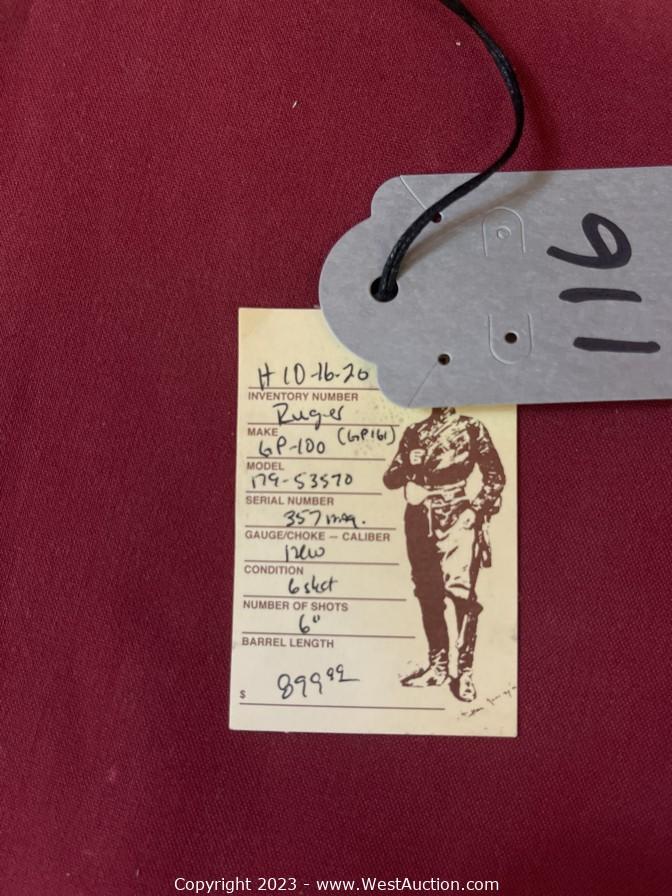 911
H 10-16-20
INVENTORY NUMBER
Ruger
MAKE
GP-100 (GP161)
MODEL
179-53570
SERIAL NUMBER
357 mag.
GAUGE/CHOKE — CALIBER
new
CONDITION
6 shot
NUMBER OF SHOTS
6"
BARREL LENGTH
$ 899.99
Copyright 2023 - www.WestAuction.com